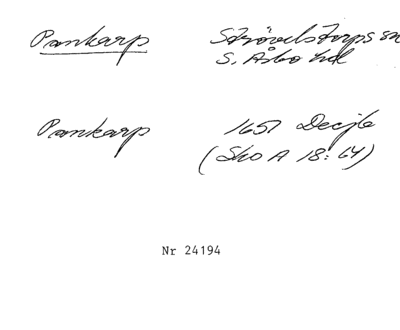 Pankarp Strövelstorps sn
S. Åsbo hd
Pankarp 1651 Decjb
(Sko A 18:64)
Nr 24194